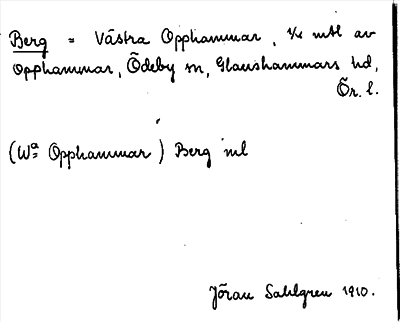 Berg = Västra Opphammar, 1/4 mtl av
Opphammar, Ödeby sn, Glanshammars hd,
Ör. l.
(Wa Opphammar) Berg ml
Jöran Sahlgren 1910.